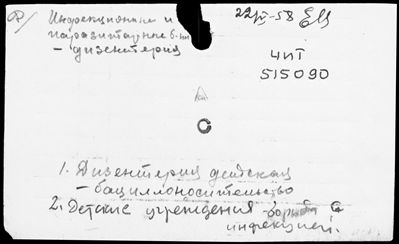 Инфекционные и
паразитарные б-ни
- дизентерия
22/IX-58
ЧИТ
515090
1. Дизентерия детская
- бациллоносительство
2. Детские учреждения борьба с
инфекцией.